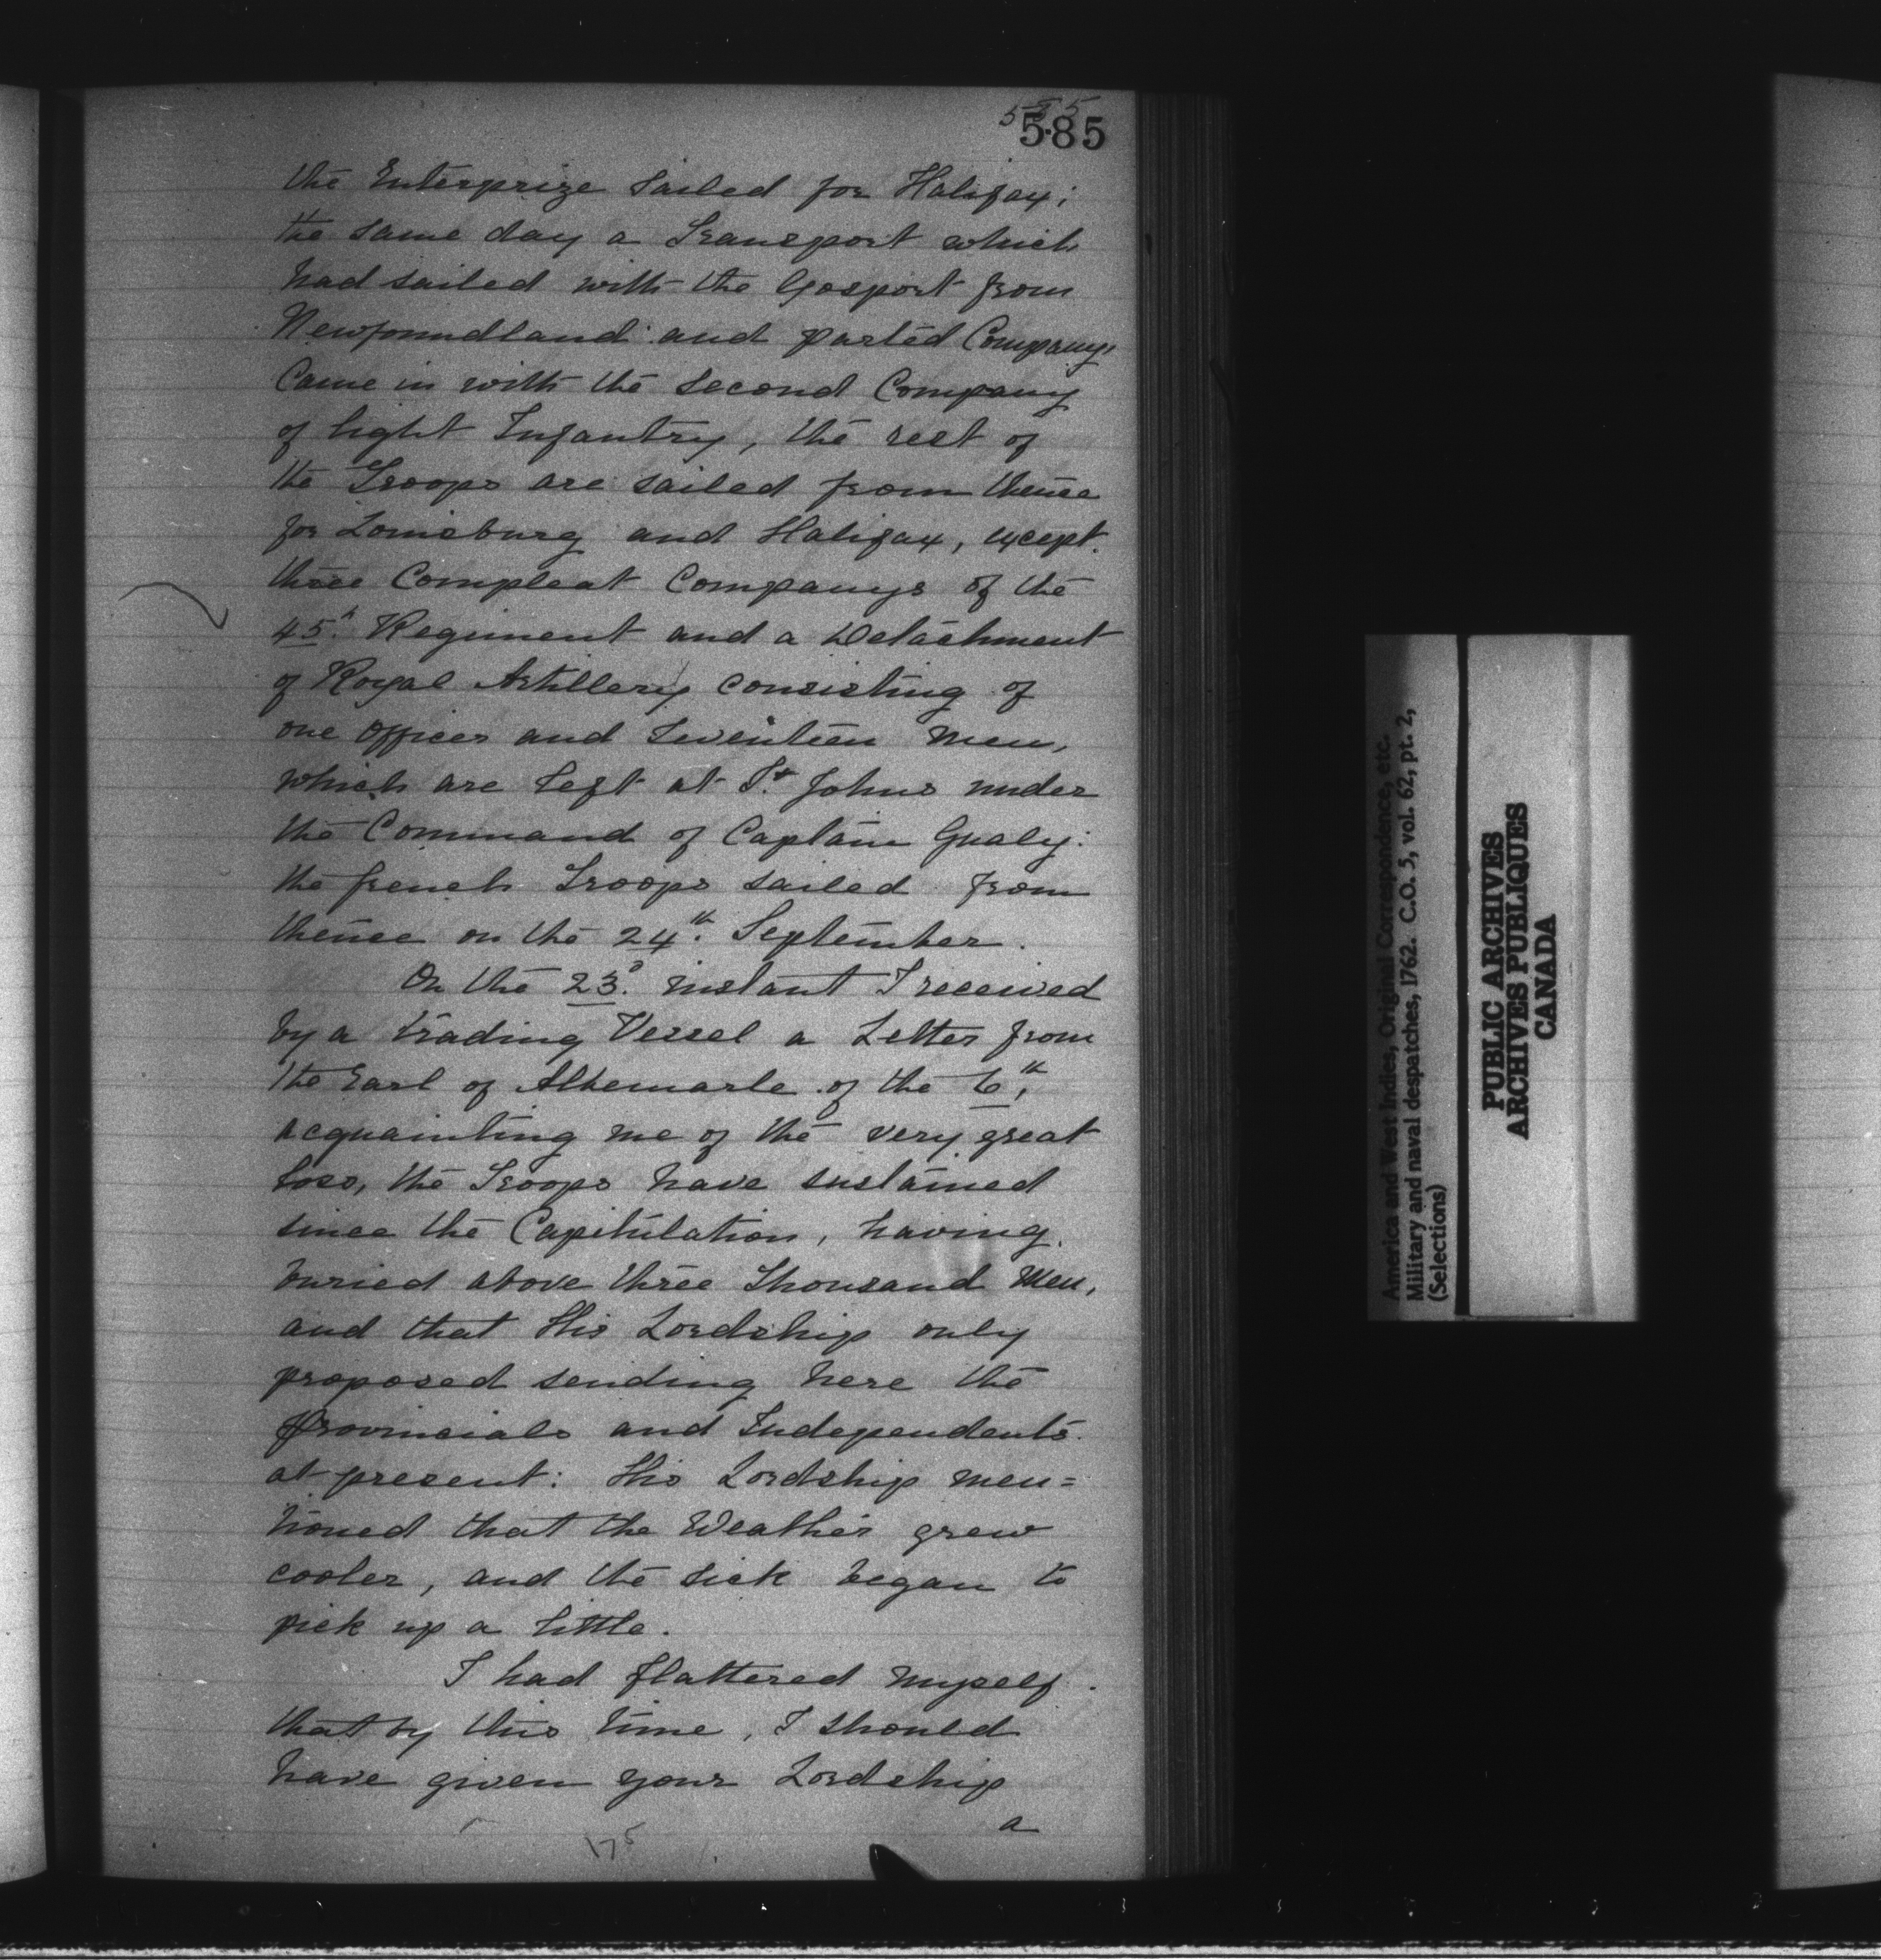 585
585
the Enterprize sailed for Halifax;
the same day a Transport which
had sailed with the Gosport from
Newfoundland and parted Company,
Came in with the second Company
of light Infantry, the rest of
the Troops are sailed from thence
for Louisburg and Halifax, except
three Compleat Companys of the
45th. Regiment and a Detachment
of Royal Artillery consisting of
one Officer and Seventeen Men,
which are left at St. Johns under
the Command of Captain Gualy:
the french Troops sailed from
thence on the 24th. September.
On the 23d. instant I received
by a trading Vessel a Letter from
the Earl of Albemarle of the 6th,
acquainting me of the very great
loss, the Troops have sustained
since the Capitulation, having
buried above three thousand Men,
and that His Lordship only
proposed sending here the
Provincials and Independents
at present: His Lordship men=
tioned that the Weather grew
cooler, and the sick began to
pick up a little.
I had flattered myself
that by this time, I should
have given your Lordship
a
175
America and West Indies, Original Correspondence, etc.
Military and naval despatches, 1762. C.O. 5, vol. 62, pt. 2,
(Selections)
PUBLIC ARCHIVES
ARCHIVES PUBLIQUES
CANADA